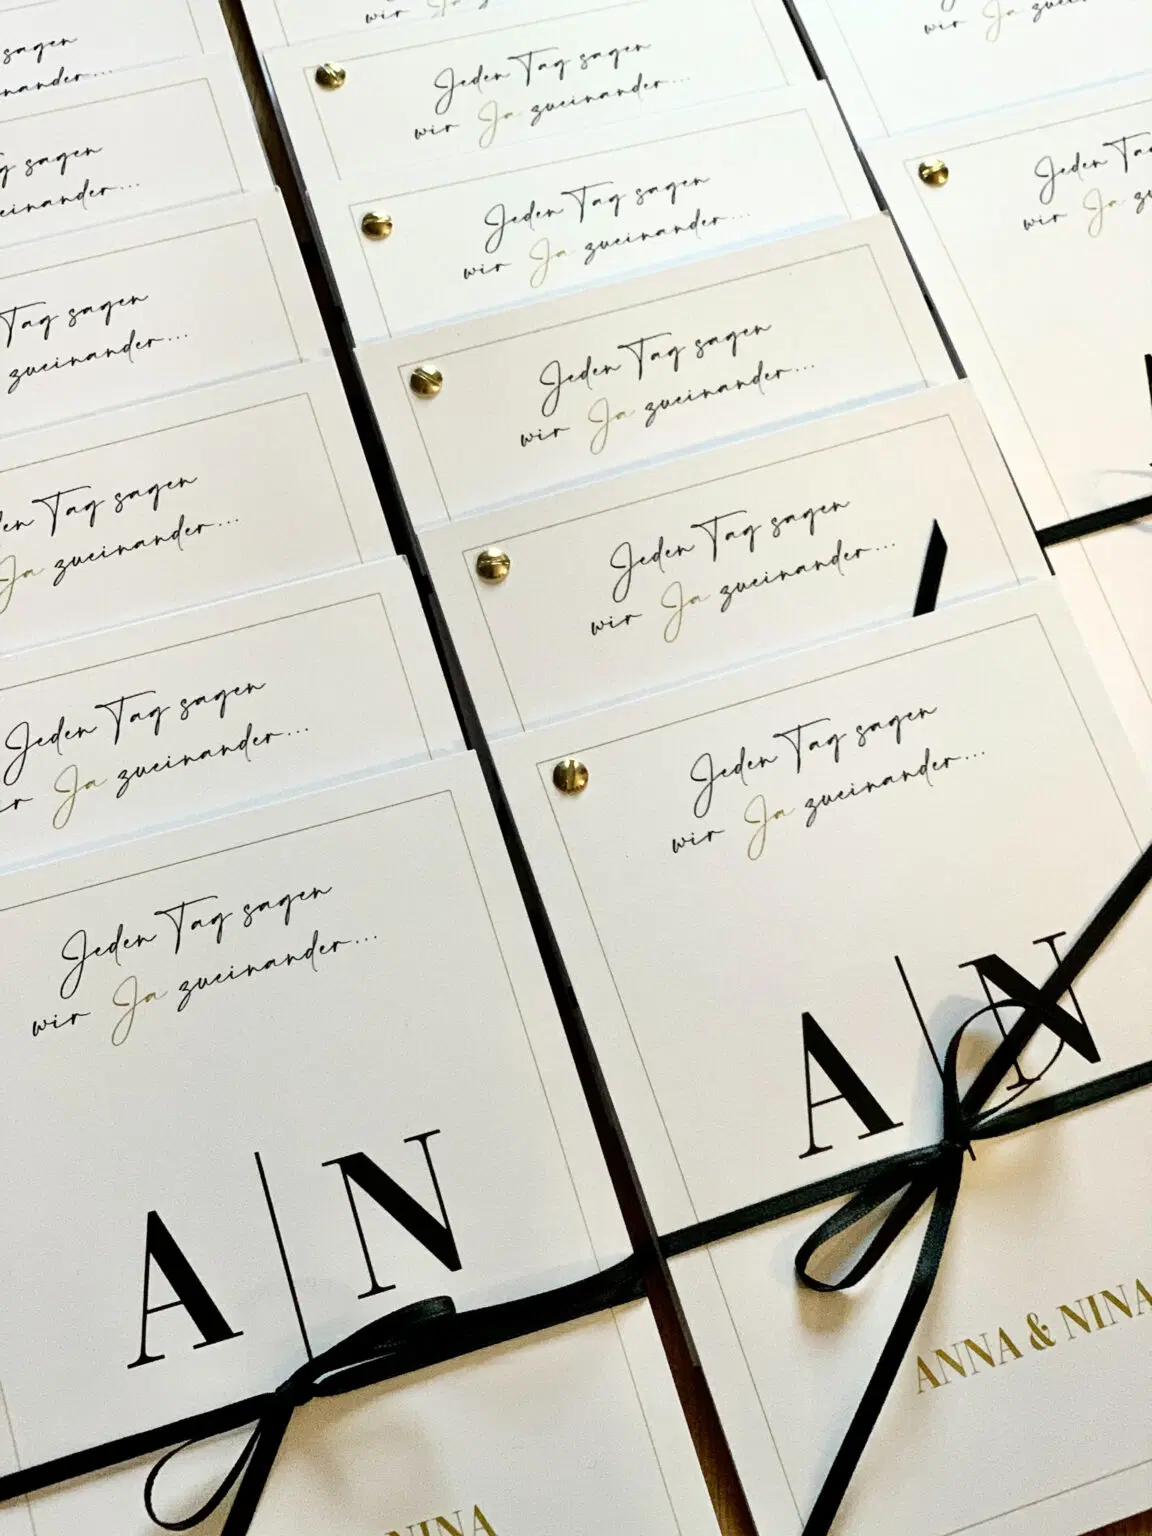 sagen
nander...
wir Ja zueinander...
Jeden Tag sagen
wir Ja zueinander...
wir Ja zuei
g sagen
einander...
Jeden Tag sagen
wir Ja zueinander...
Jeden Ta
wir Ja zu
Tag sagen
zueinander...
Jeden Tag sagen
wir Ja zueinander...
en Tag sagen
Ja zueinander...
Jeden Tag sagen
wir Ja zueinander...
Jeden Tag sagen
r Ja zueinander...
Jeden Tag sagen
wir Ja zueinander...
A | N
ANNA & NINA
Jeden Tag sagen
wir Ja zueinander...
A | N
NINA